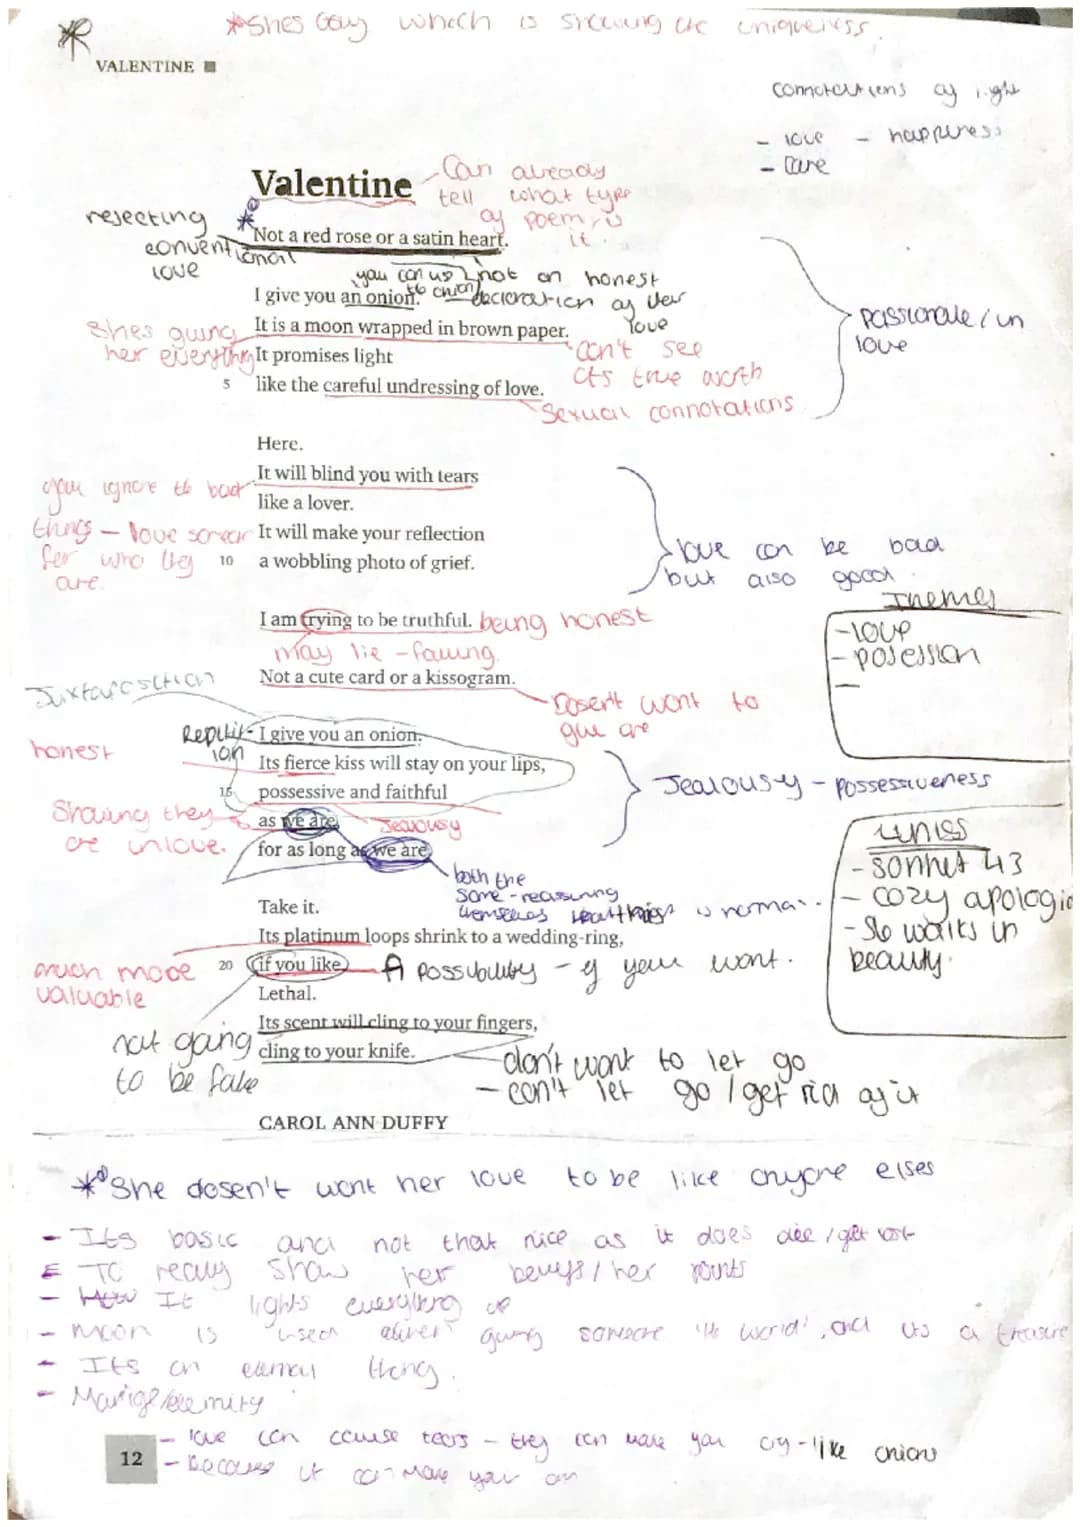 *Shes Gay which is showing the uniqueness.
VALENTINE
connotations of light
- love - happiness
- Care
Valentine
Can already
tell what type
of poem is
it.
rejecting
conventional
love
Not a red rose or a satin heart.
not an honest
declaration of her
love
I give you an onion.
It is a moon wrapped in brown paper.
Shes giving
her everything
can't see
its true worth
It promises light
5 like the careful undressing of love.
Sexual connotations
passionate / in
love
Here.
It will blind you with tears
like a lover.
It will make your reflection
10 a wobbling photo of grief.
you ignore the bad
things - love someone
for who they
are.
love can be bad
but also good
I am trying to be truthful.
being honest
may lie - failing.
Not a cute card or a kissogram.
Dosen't want to
give one
Themes
- love
- posession
-
Juxtaposition
Repitition
honest
I give you an onion.
Its fierce kiss will stay on your lips,
15 possessive and faithful
as we are,
for as long as we are.
Jealousy
Jealousy - possessiveness
Showing they
are inlove.
both the
same - reassuring
themselves
is normal
Links
- sonnet 43
- cozy apologia
- She walks in
beauty.
Take it.
Its platinum loops shrink to a wedding-ring,
20 if you like.
A possibility - if you want.
much more
valuable
Lethal.
Its scent will cling to your fingers,
cling to your knife.
not going
to be fake
- don't want to let go
- can't let go / get rid of it
CAROL ANN DUFFY
* She dosen't want her love to be like anyone elses
- Its basic and not that nice as it does die / get lost
To really show her beliefs / her points
- It lights everything up
- moon is used giving someone 'the world', and its a treasure
- Its an eternal thing.
- Marige/eternity
- love can cause tears - they can make you cry - like onions
- Because it can make you an
12